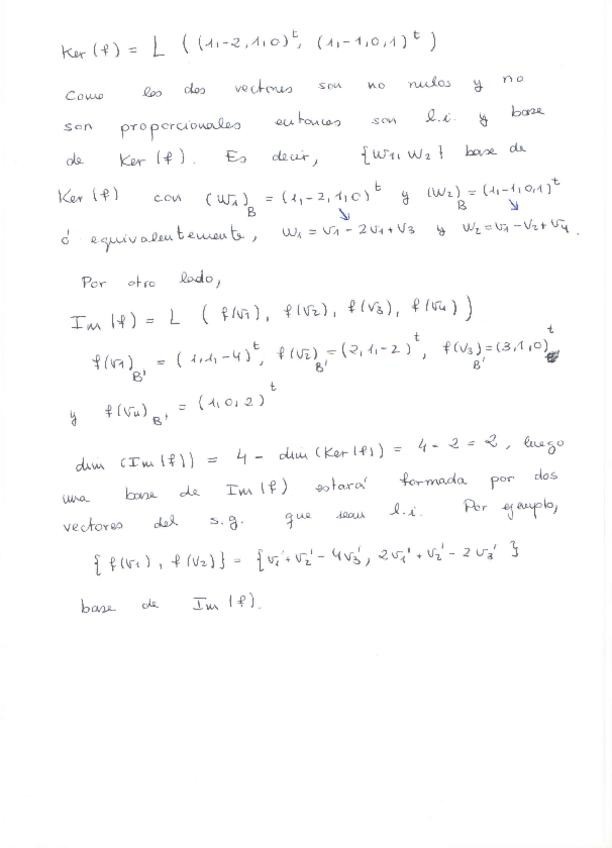 Ker(f) = L ((1,-2,1,0)^t, (1,-1,0,1)^t)
Como los dos vectores son no nulos y no
son proporcionales entonces son l.i. y base
de Ker(f). Es decir, {w1, w2} base de
Ker(f) con (w1)_B = (1,-2,1,0)^t y (w2)_B = (1,-1,0,1)^t
ó equivalentemente, w1 = v1 - 2v1 + v3 y w2 = v1 - v2 + v4.
Por otro lado,
Im(f) = L (f(v1), f(v2), f(v3), f(v4))
f(v1)_B' = (1,1,-4)^t, f(v2)_B' = (2,1,-2)^t, f(v3)_B' = (3,1,0)^t
y f(v4)_B' = (1,0,2)^t
dim (Im(f)) = 4 - dim(Ker(f)) = 4 - 2 = 2, luego
una base de Im(f) estará formada por dos
vectores del s.g. que sean l.i. Por ejemplo,
{f(v1), f(v2)} = {v1' + v2' - 4v3', 2v1' + v2' - 2v3'}
base de Im(f).